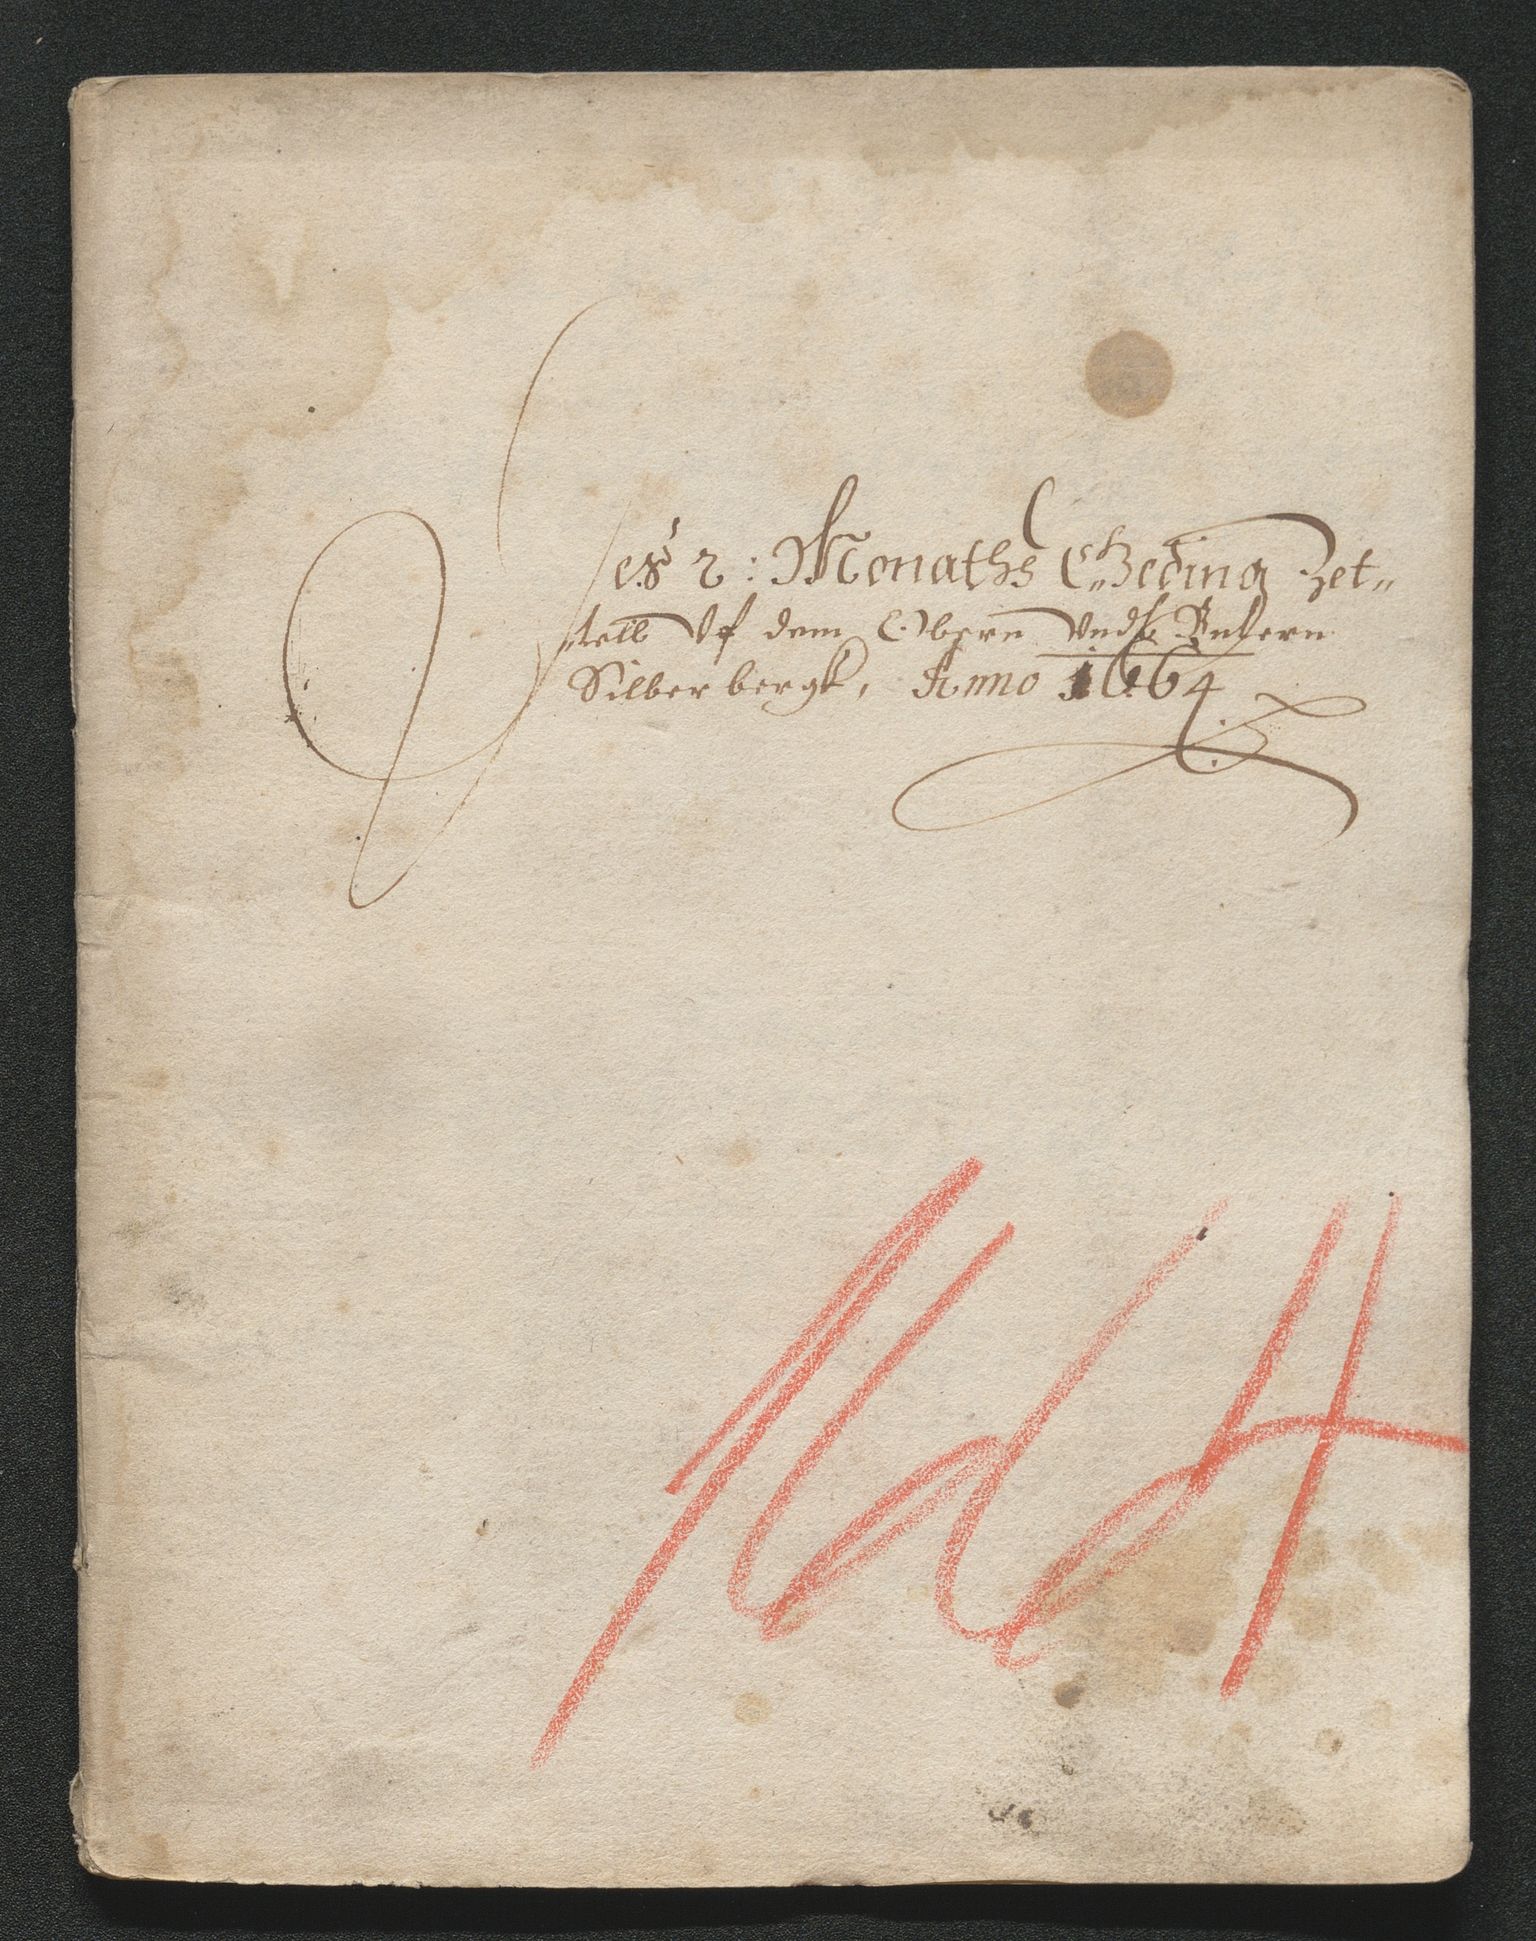 Des 2: Monaths Geding Zet„
tell Vf dem Obern Vndt Vntern
Silber bergk, Anno 1664
1664